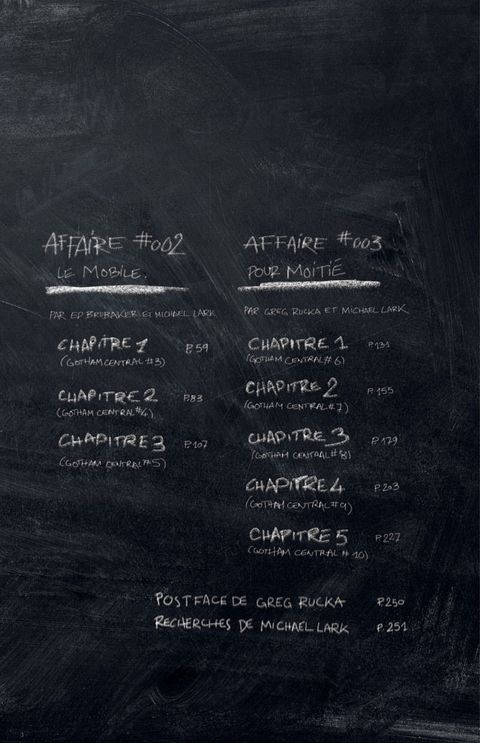 AFFAIRE #002
LE MOBILE.
PAR ED BRUBAKER ET MICHAEL LARK
CHAPITRE 1 P.59
(GOTHAM CENTRAL #3)
CHAPITRE 2 P.83
(GOTHAM CENTRAL #4)
CHAPITRE 3 P.107
(GOTHAM CENTRAL #5)
AFFAIRE #003
POUR MOITIÉ
PAR GREG RUCKA ET MICHAEL LARK
CHAPITRE 1 P.131
(GOTHAM CENTRAL #6)
CHAPITRE 2 P.155
(GOTHAM CENTRAL #7)
CHAPITRE 3 P.179
(GOTHAM CENTRAL #8)
CHAPITRE 4 P.203
(GOTHAM CENTRAL #9)
CHAPITRE 5 P.227
(GOTHAM CENTRAL #10)
POSTFACE DE GREG RUCKA P.250
RECHERCHES DE MICHAEL LARK P.251